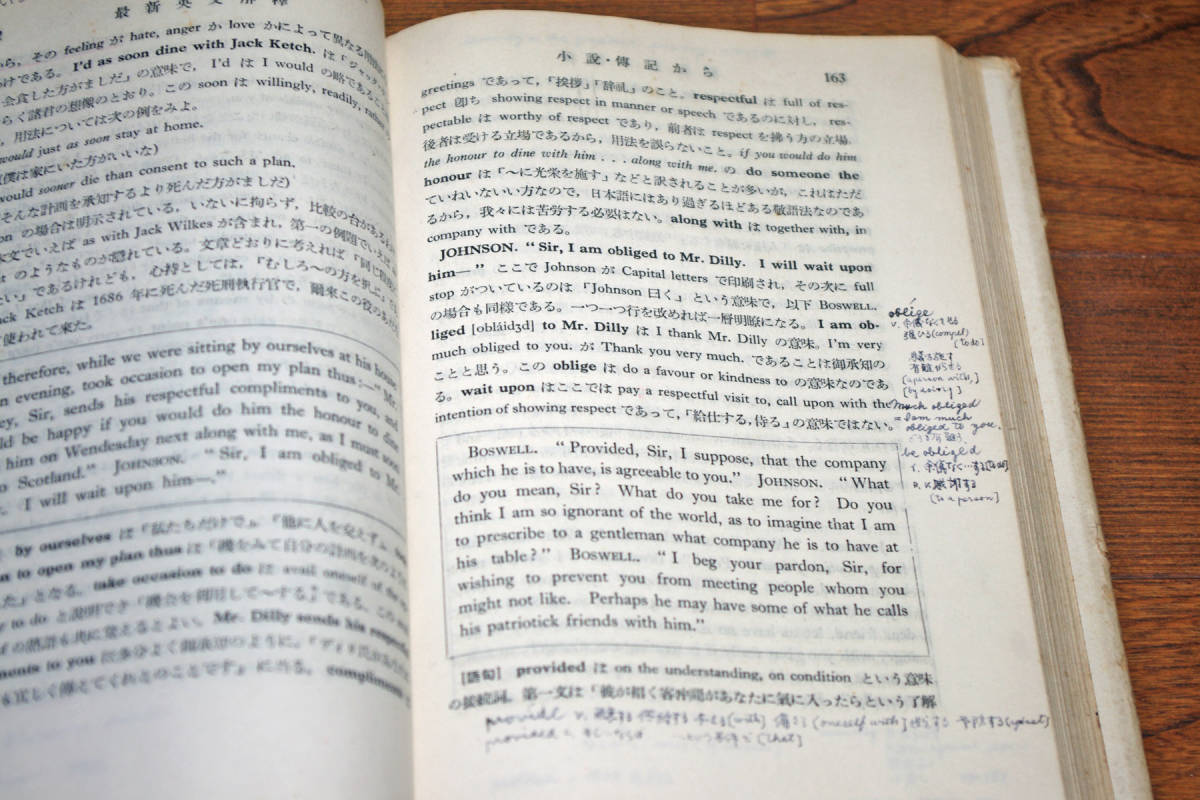 最新英文解釋
ら, その feeling が hate, anger か love かによって異なる
けである。 I'd as soon dine with Jack Ketch. は「ジャック
会食した方がましだ」の意味で, I'd は I would の略である
らく諸君の想像のとおり。この soon は willingly, readily, rather
, 用法については次の例をみよ。
would just as soon stay at home.
僕は家にいた方がいいな)
would sooner die than consent to such a plan.
そんな計画を承知するより死んだ方がましだ)
on の場合は明示されている, いないに拘らず, 比較の台が
文でいえば as with Jack Wilkes が含まれ, 第一の例題でいえば
のようなものが隠れている。文章どおりに考えれば「同じ
い」であるけれども, 心持としては,「むしろ～の方を択ぶ」
ack Ketch は 1686 年に死んだ死刑執行官で, 爾来この役の
使われて来た。
therefore, while we were sitting by ourselves at his house
n evening, took occasion to open my plan thus:—"Mr.
ey, Sir, sends his respectful compliments to you, and
ld be happy if you would do him the honour to dine
him on Wendesday next along with me, as I must soon
o Scotland." JOHNSON. "Sir, I am obliged to Mr.
. I will wait upon him—,"
by ourselves は「私たちだけで」,「他に人を交えず」
n to open my plan thus は「機をみて自分の計画を次のように
た」となる。take occasion to do は avail oneself of the
to do と説明でき「機会を利用して～する」である。この
の熟語も共に覚えるとよい。Mr. Dilly sends his respectful
ments to you は
も宜しく傳えてくれとのことです」に当る。compliments
小説・傳記から 163
greetings であって,「挨拶」「辞礼」のこと。respectful は full of res-
pect 即ち showing respect in manner or speech であるのに対し, res-
pectable は worthy of respect であり, 前者は respect を拂う方の立場,
後者は受ける立場であるから, 用法を誤らないこと。if you would do him
the honour to dine with him . . . along with me. の do someone the
honour は「～に光栄を施す」などと訳されることが多いが, これはただ
ていねいない方なので, 日本語にはあり過ぎるほどある敬語法なのであ
るから, 我々には苦労する必要はない。along with は together with, in
company with である。
JOHNSON. "Sir, I am obliged to Mr. Dilly. I will wait upon
him—" ここで Johnson が Capital letters で印刷され, その次に full
stop がついているのは「Johnson 曰く」という意味で, 以下 BOSWELL.
の場合も同様である。一つ一つ行を改めれば一層明瞭になる。I am ob-
liged [obláidʒd] to Mr. Dilly は I thank Mr. Dilly の意味。I'm very
much obliged to you. が Thank you very much. であることは御承知の
ことと思う。この oblige は do a favour or kindness to の意味なのであ
る。wait upon はここでは pay a respectful visit to, call upon with the
intention of showing respect であって,「給仕する, 侍る」の意味ではない。
BOSWELL. "Provided, Sir, I suppose, that the company
which he is to have, is agreeable to you." JOHNSON. "What
do you mean, Sir? What do you take me for? Do you
think I am so ignorant of the world, as to imagine that I am
to prescribe to a gentleman what company he is to have at
his table?" BOSWELL. "I beg your pardon, Sir, for
wishing to prevent you from meeting people whom you
might not like. Perhaps he may have some of what he calls
his patriotick friends with him."
[語句] provided は on the understanding, on condition という意味
の接続詞。第一文は「彼が招く客仲間があなたに氣に入ったらという了解
oblige
v. 余儀なくする
強ひる (compel)
(to do)
(a person with,)
(by doing)
Much obliged
= I am much
obliged to you.
be obliged
1. 余儀なく…する (to do)
(to a person)
provide v. 供給する (with) (oneself with)
provided (that)